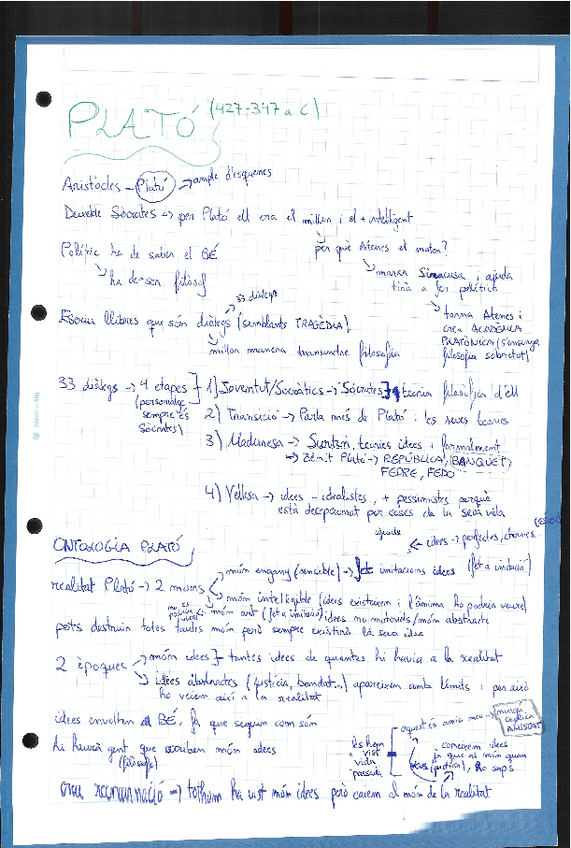 PLATÓ (427-347 a C)
Aristòcles - Plató → ample d'esquenes
Deixeble Sòcrates → per Plató ell era el millor i el + intelligent
Polític ha de saber el BÉ
per què Atenes el maten?
ha de ser filòsof
marxa Siracusa i ajuda
a fer política
33 diàlegs
Escriu llibres que són diàlegs (semblants TRAGÈDIA)
torna Atenes i
crea ACADÈMIA
PLATÒNICA (s'ensenya
filosofia sobretot)
millor manera transmetre filosofia
33 diàlegs → 4 etapes
(personatge
sempre és
Sòcrates)
1) Joventut/Socràtics → Sòcrates teoria filosòfica d'ell
2) Transició → Parla més de Plató i les seves teories
3) Maduresa → teories idees + formalment
→ Zènit Plató → REPÚBLICA, BANQUET,
FEDRE, FEDÓ
4) Vellesa → idees - idealistes, + pessimistes perquè
està decepcionat per coses de la seva vida
ONTOLOGIA PLATÓ
idees → perfectes, eternes
realitat Plató → 2 mons
món engany (sensible) → imitacions idees (fet a imitació)
món intelligible (idees existeixen i l'ànima ho podria veure)
món art (fet a imitació) idees no materials/món abstracte
pots destruir totes taules món però sempre existirà la seva idea
2 èpoques
món idees → tantes idees de quantes hi havia a la realitat
idees abstractes (justícia, bondat...) apareixen amb límits i per això
ho veiem així a la realitat
idees envolten BÉ, fa que siguin com són
hi haurà gent que món idees
(filòsofs)
les hem
vist
vida
passada
aquest és amic meu
AMISTAT
coneixem idees
ja que al món quan
(justícia), ho saps
tothom ha vist món idees però caiem al món de la realitat